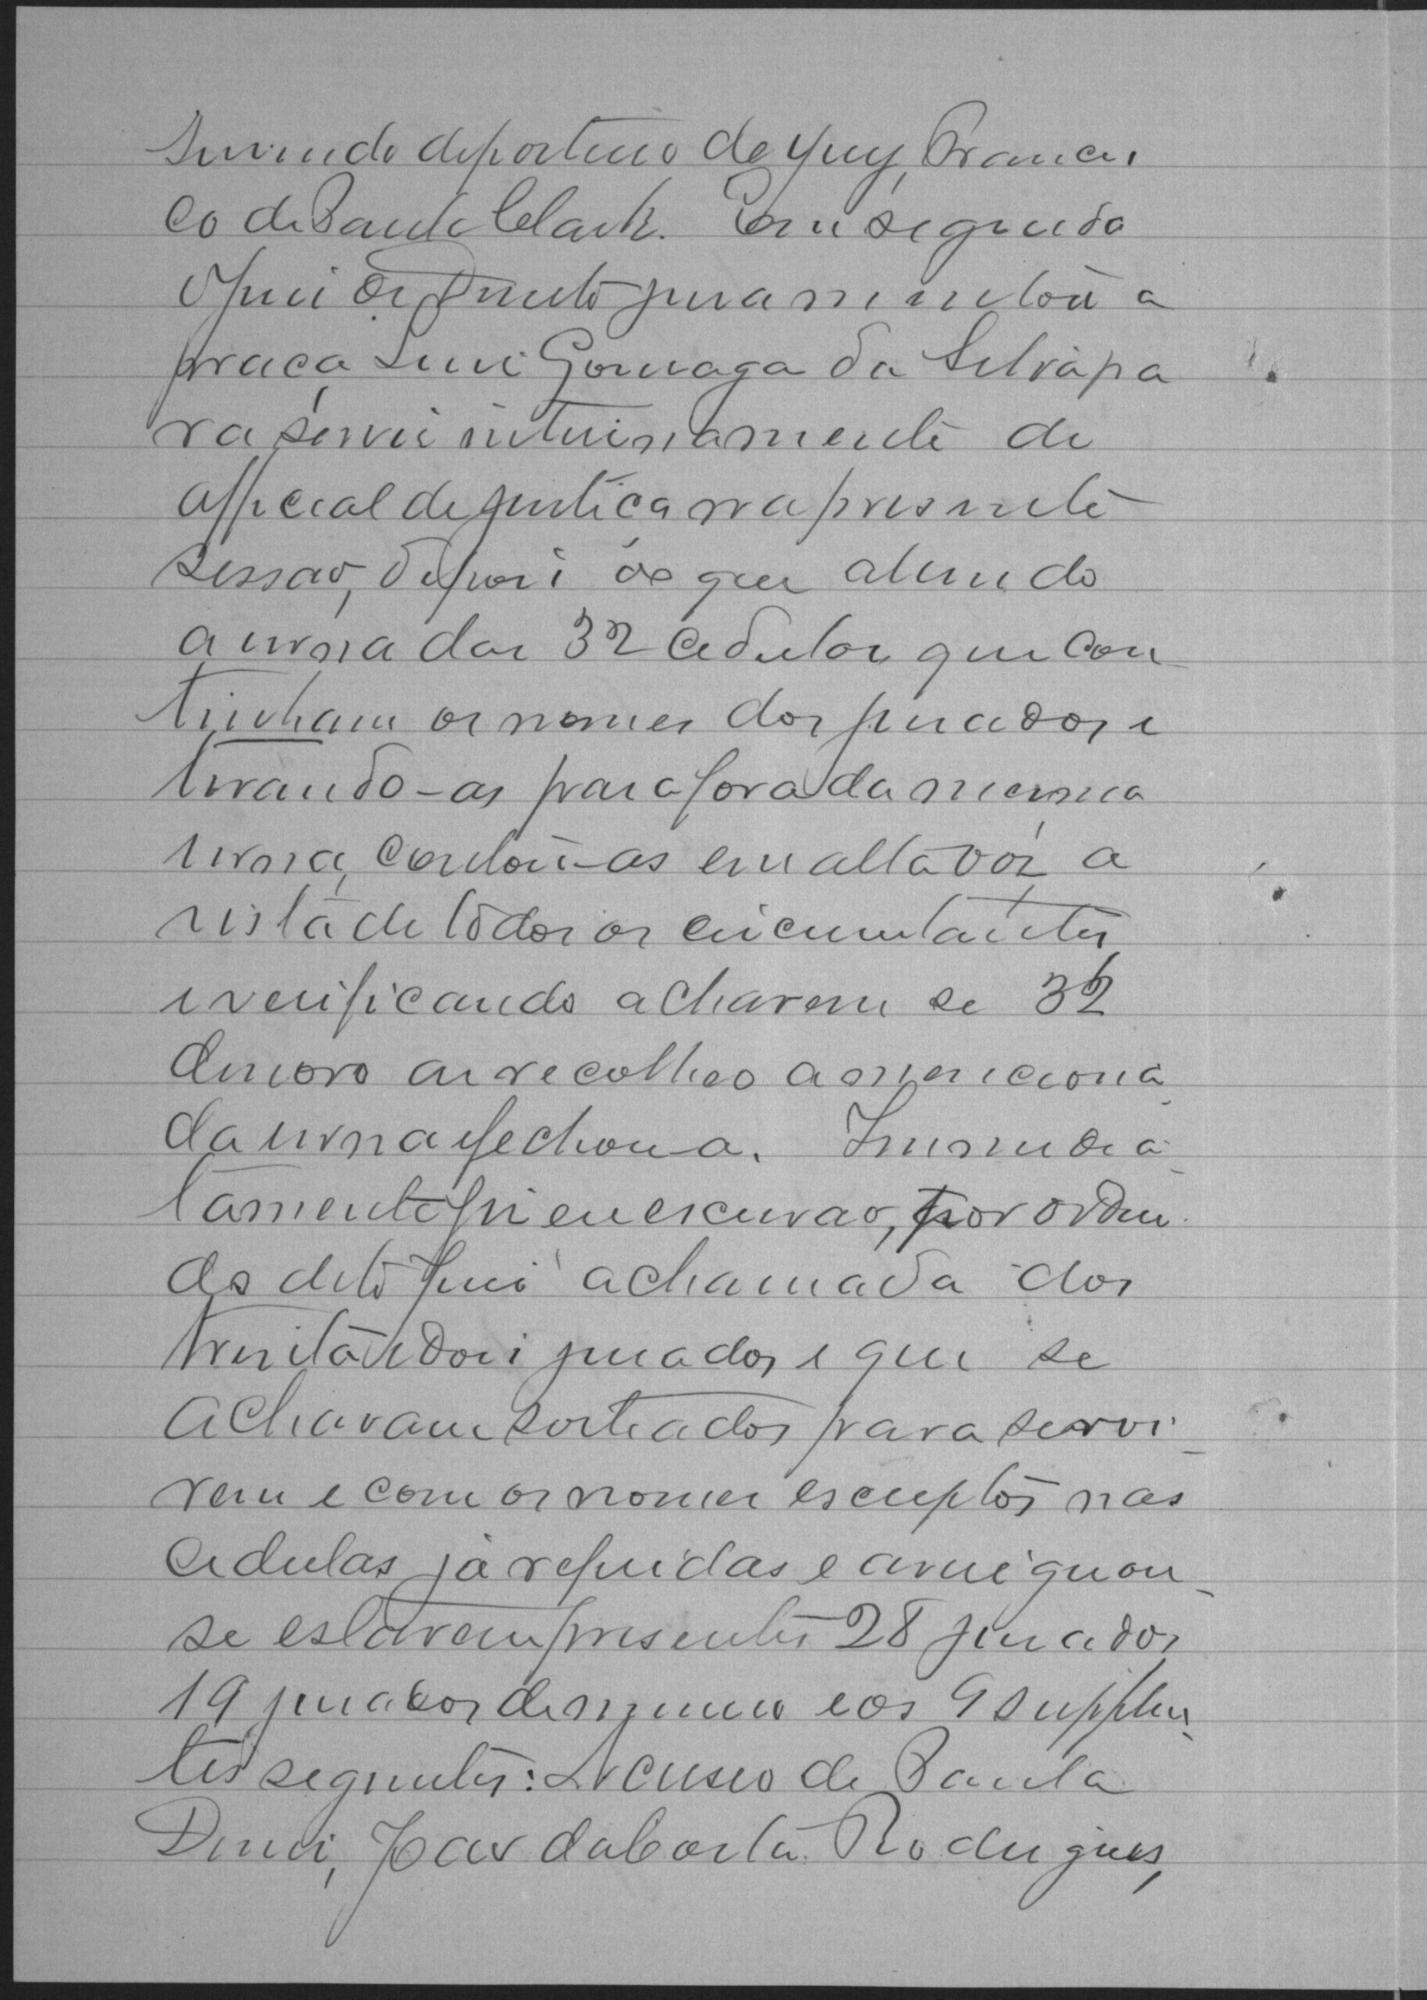 servindo de porteiro do jury, Francis
co de Paula Clark. Em seguida
o Juiz de Direito juramentou a
praça Luiz Gonzaga da Silva pa
ra servir interinamente de
official de justiça na presente
sessão, depois do que abrindo
a urna das 32 cedulas que con
tinham os nomes dos jurados e
tirando-as para fora da mesma
urna, contou-as em alta voz a
vista de todos os circunstantes,
e verificando acharem se 32
de novo as recolheo a menciona
da urna e fechou-a. Immedia
tamente fiz eu escrivão, por ordem
do dito Juiz a chamada dos
trinta e dois jurados e que se
achavam sorteados para servi
rem e com os nomes escriptos nas
cedulas já referidas e averiguou
se estavam presentes 28 jurados
19 jurados de numero e os 9 supplen
tes seguintes: de Paula
Diniz, João da Costa Rodrigues,